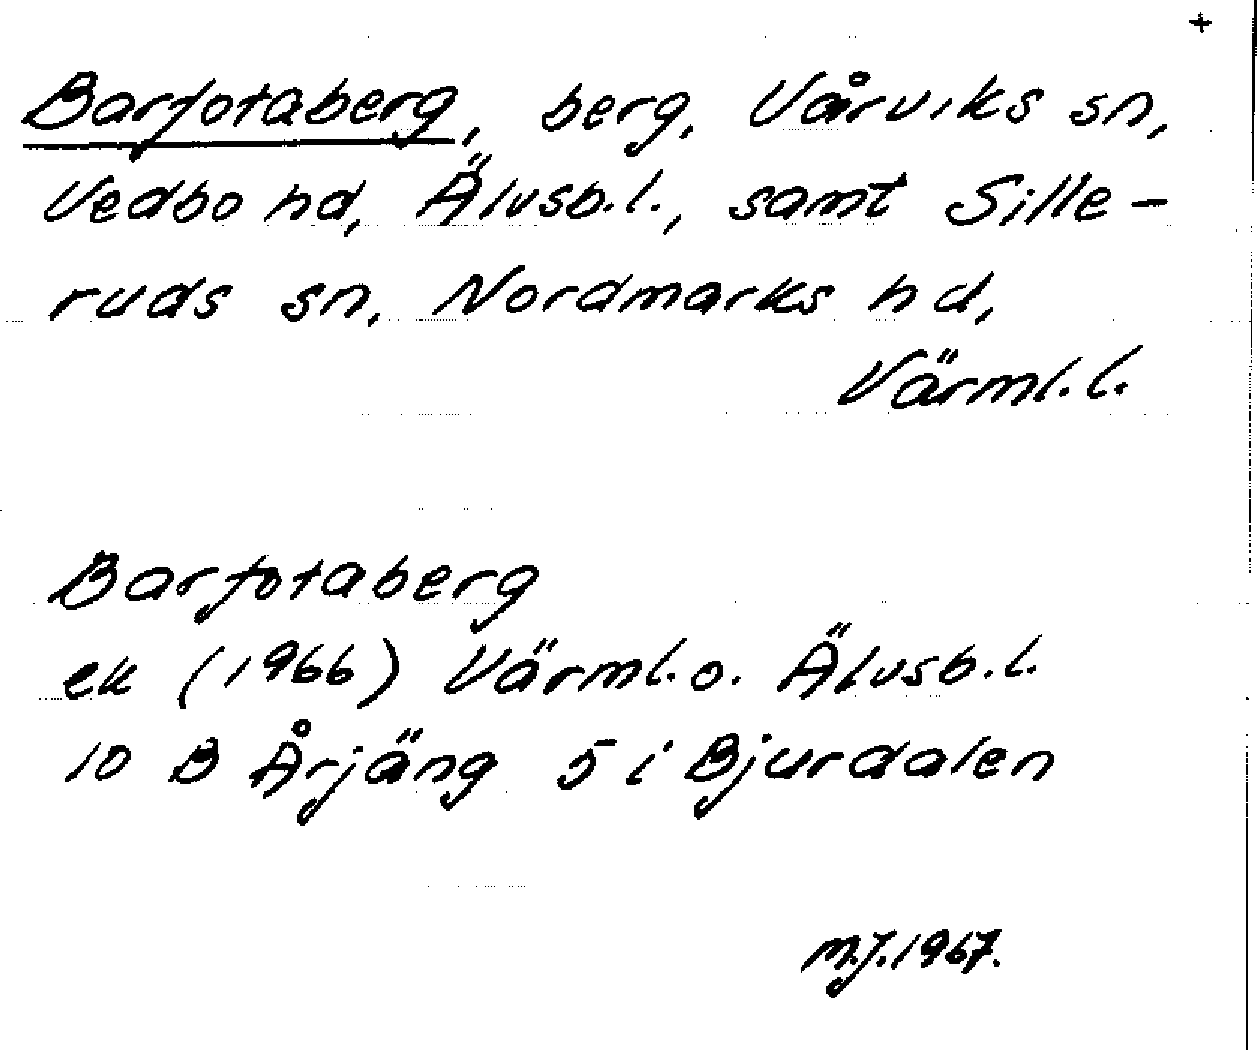 +
Barfotaberg, berg, Vårviks sn,
Vedbo hd, Älvsb.l., samt Sille-
ruds sn, Nordmarks hd,
Värml.l.
Barfotaberg
ek (1966) Värml.o. Älvsb.l.
10 B Årjäng 5 i Bjurdalen
M.J.1967.